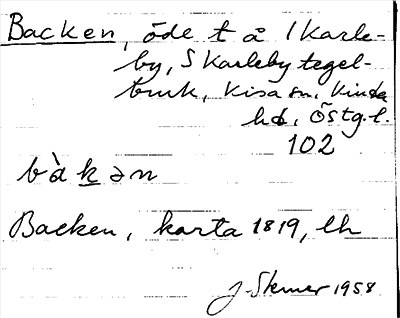 Backen, öde t å 1 Karle-
by, S Karleby tegel-
bruk, Kisa sn. Kinda
hd, Östg.l.
102
bàkən
Backen, karta 1819, lh
J. Stenner 1958